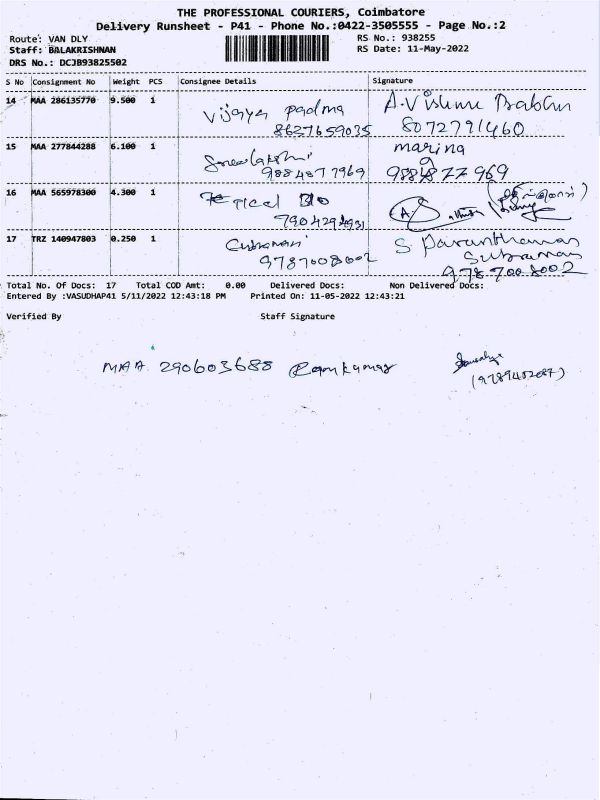 THE PROFESSIONAL COURIERS, Coimbatore
Delivery Runsheet - P41 - Phone No.:0422-3505555 - Page No.:2
Route: VAN DLY RS No.: 938255
Staff: BALAKRISHNAN RS Date: 11-May-2022
DRS No.: DCJB93825502
S No Consignment No Weight PCS Consignee Details Signature
14 MAA 286135770 9.500 1 Vijaya Padma A.Vishnu
8637659035 8072791460
15 MAA 277844288 6.100 1 marina
9884877969 9884877969
16 MAA 565978300 4.300 1
17 TRZ 140947803 0.250 1 S
9787008002 Subraman
9787008002
Total No. Of Docs: 17 Total COD Amt: 0.00 Delivered Docs: Non Delivered Docs:
Entered By :VASUDHAP41 5/11/2022 12:43:18 PM Printed On: 11-05-2022 12:43:21
Verified By Staff Signature
MAA 290603688 Ramkumar